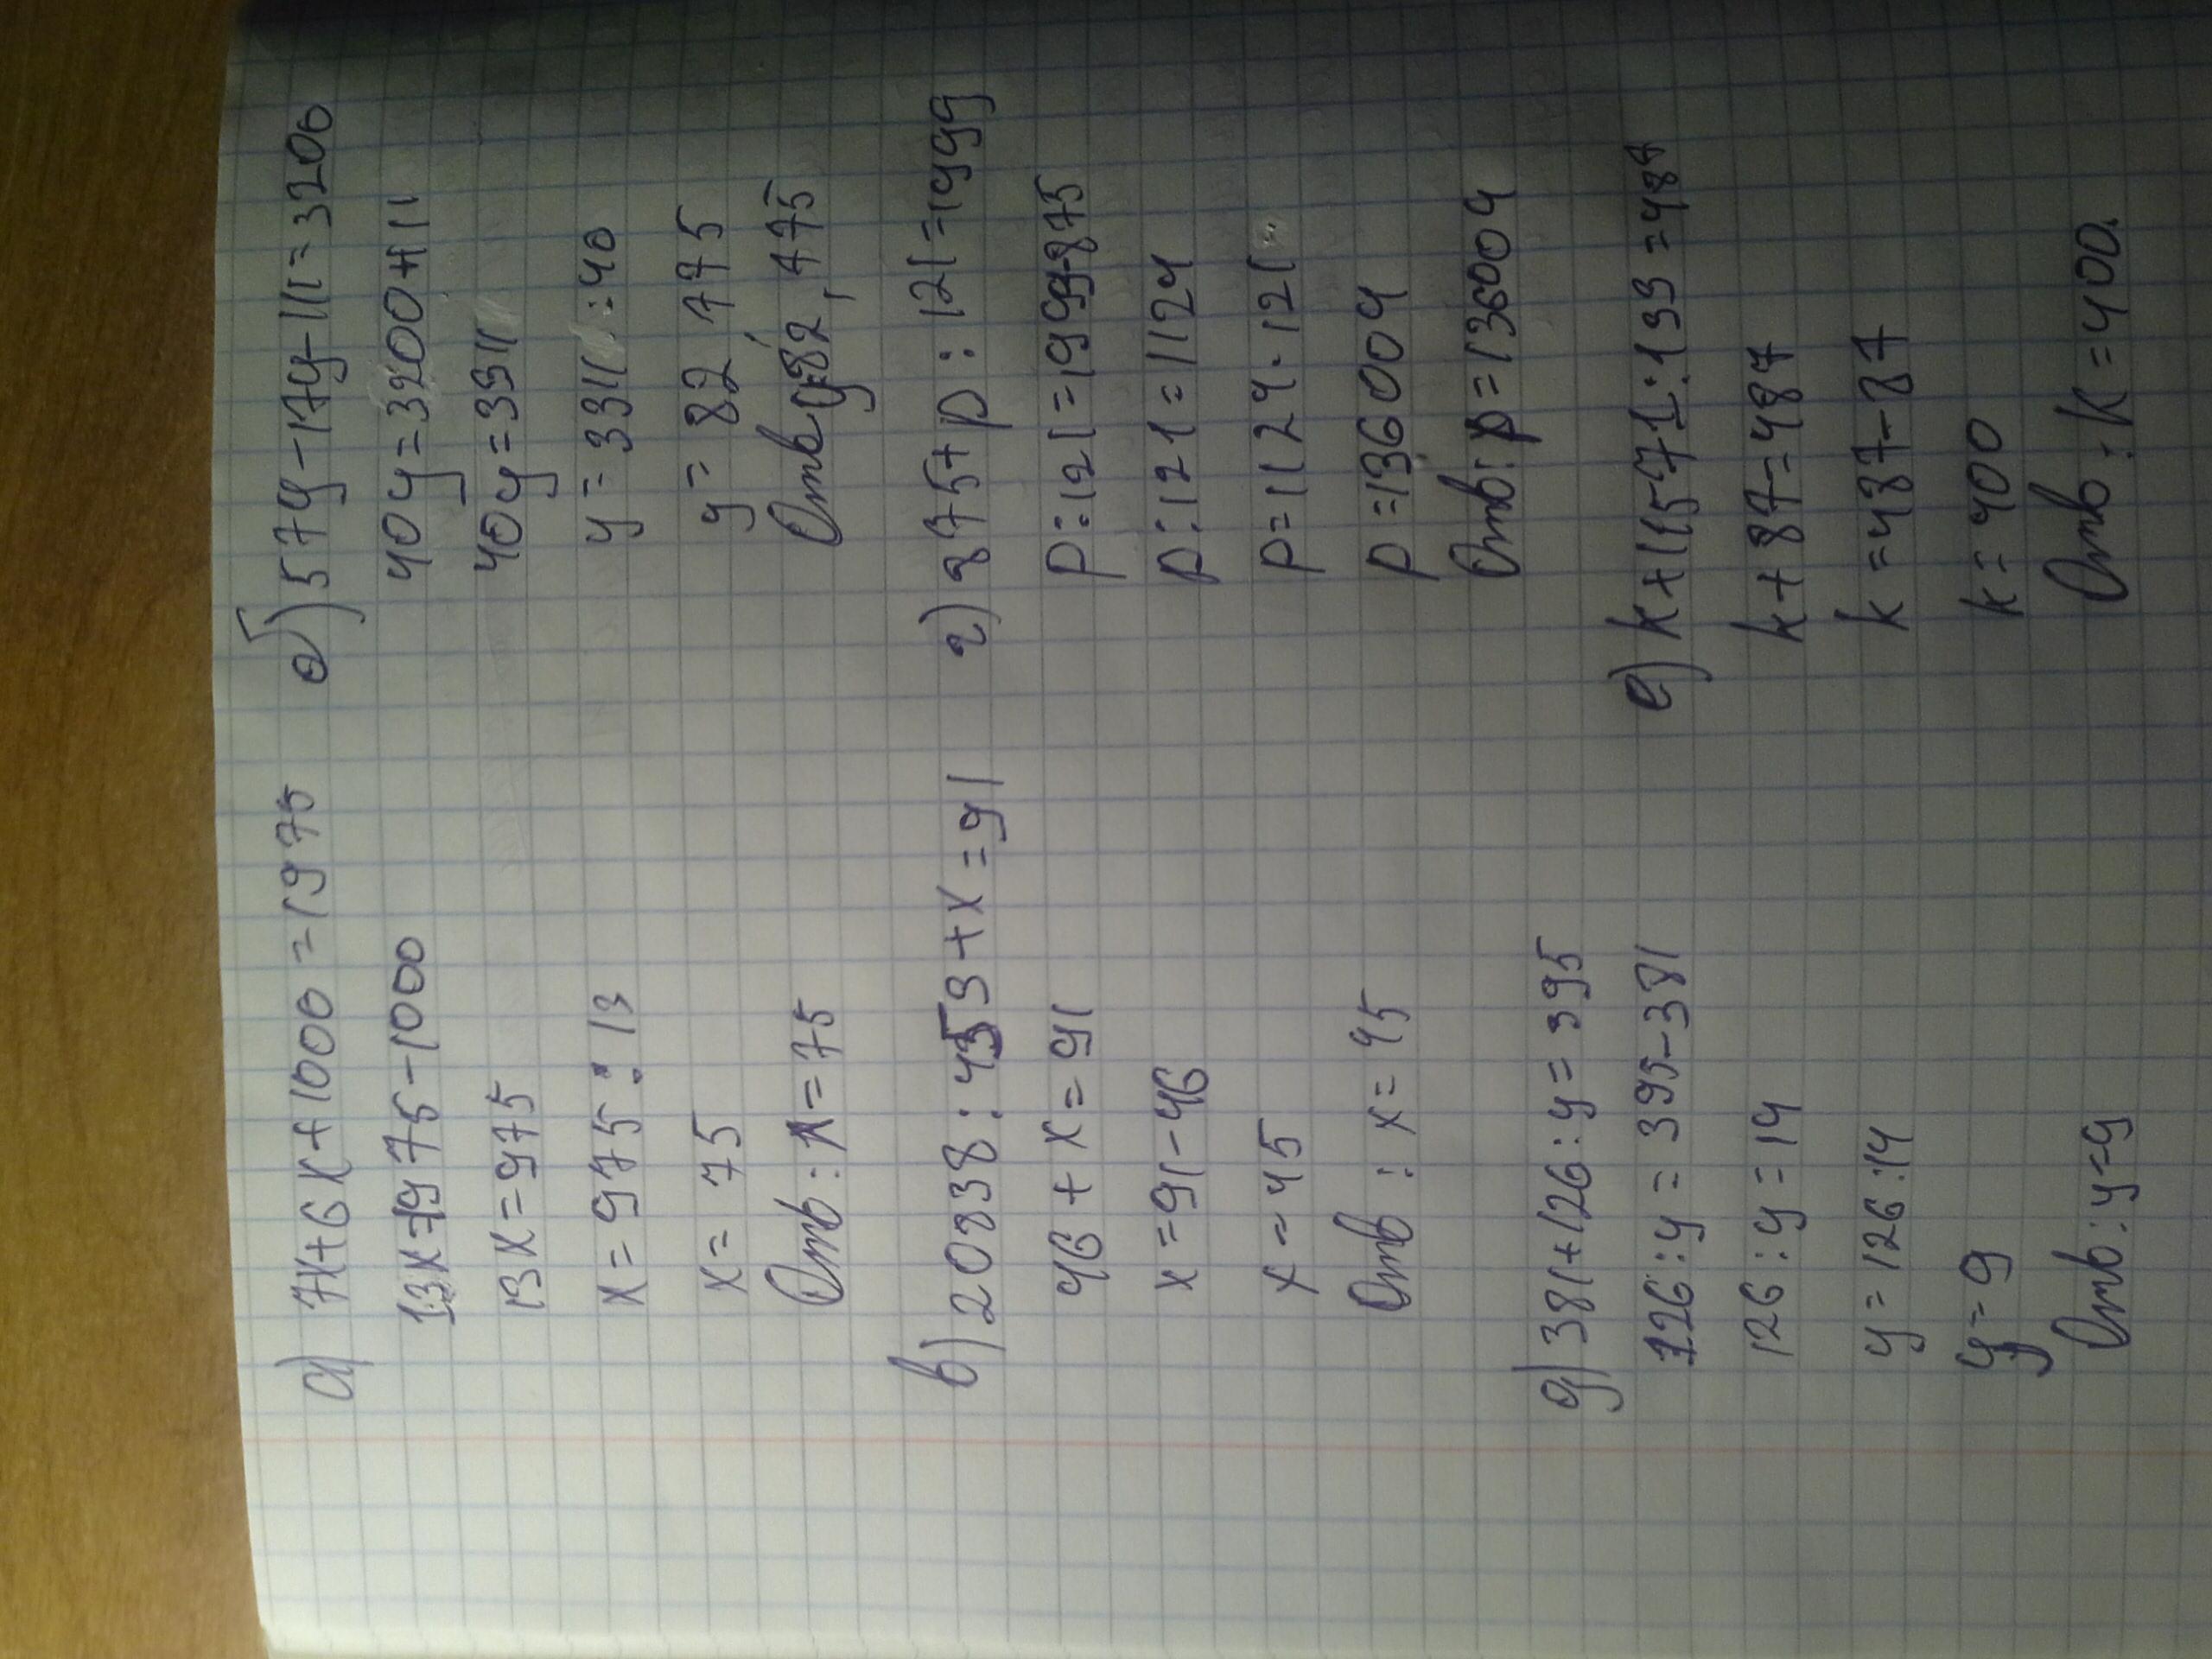 а) 7x+6x+1000=1975
13x=1975-1000
13x=975
x=975:13
x=75
Отв: x=75
б) 57y-17y-111=3200
40y=3200+111
40y=3311
y=3311:40
y=82,775
Отв y=82,775
в) 20838:453+x=91
46+x=91
x=91-46
x=45
Отв: x=45
г) 875+p:121=1999
p:121=1999-875
p:121=1124
p=1124·121
p=136004
Отв: p=136004
д) 381+126:y=395
126:y=395-381
126:y=14
y=126:14
y=9
Отв: y=9
е) k+11571:133=487
k+87=487
k=487-87
k=400
Отв: k=400.